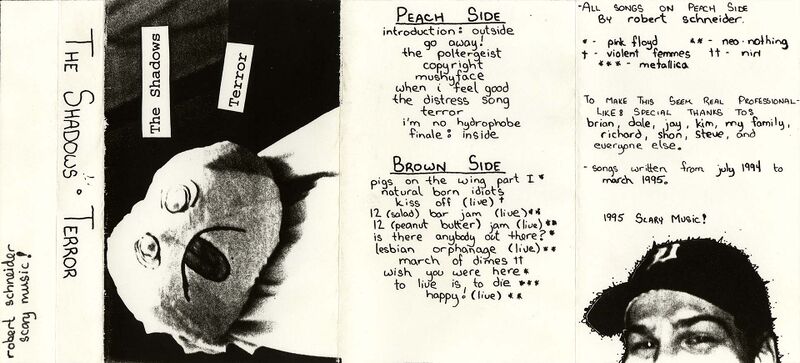 robert schneider
scary music!
THE SHADOWS : TERROR
The Shadows
Terror
PEACH SIDE
introduction: outside
go away!
the poltergeist
copyright
mushyface
when i feel good
the distress song
terror
i'm no hydrophobe
finale: inside
BROWN SIDE
pigs on the wing part I *
natural born idiots
kiss off (live) †
12 (salad) bar jam (live)**
12 (peanut butter) jam (live)**
is there anybody out there?*
lesbian orphanage (live)**
march of dimes ††
wish you were here*
to live is to die ***
happy! (live) **
-ALL SONGS ON PEACH SIDE
BY robert schneider.
* - pink floyd ** - neo-nothing
† - violent femmes †† - nin
*** - metallica
TO MAKE THIS SEEM REAL PROFESSIONAL-
LIKE: SPECIAL THANKS TO:
brian, dale, jay, kim, my family,
richard, shon, steve, and
everyone else.
- songs written from july 1994 to
march 1995.
1995 SCARY MUSIC!